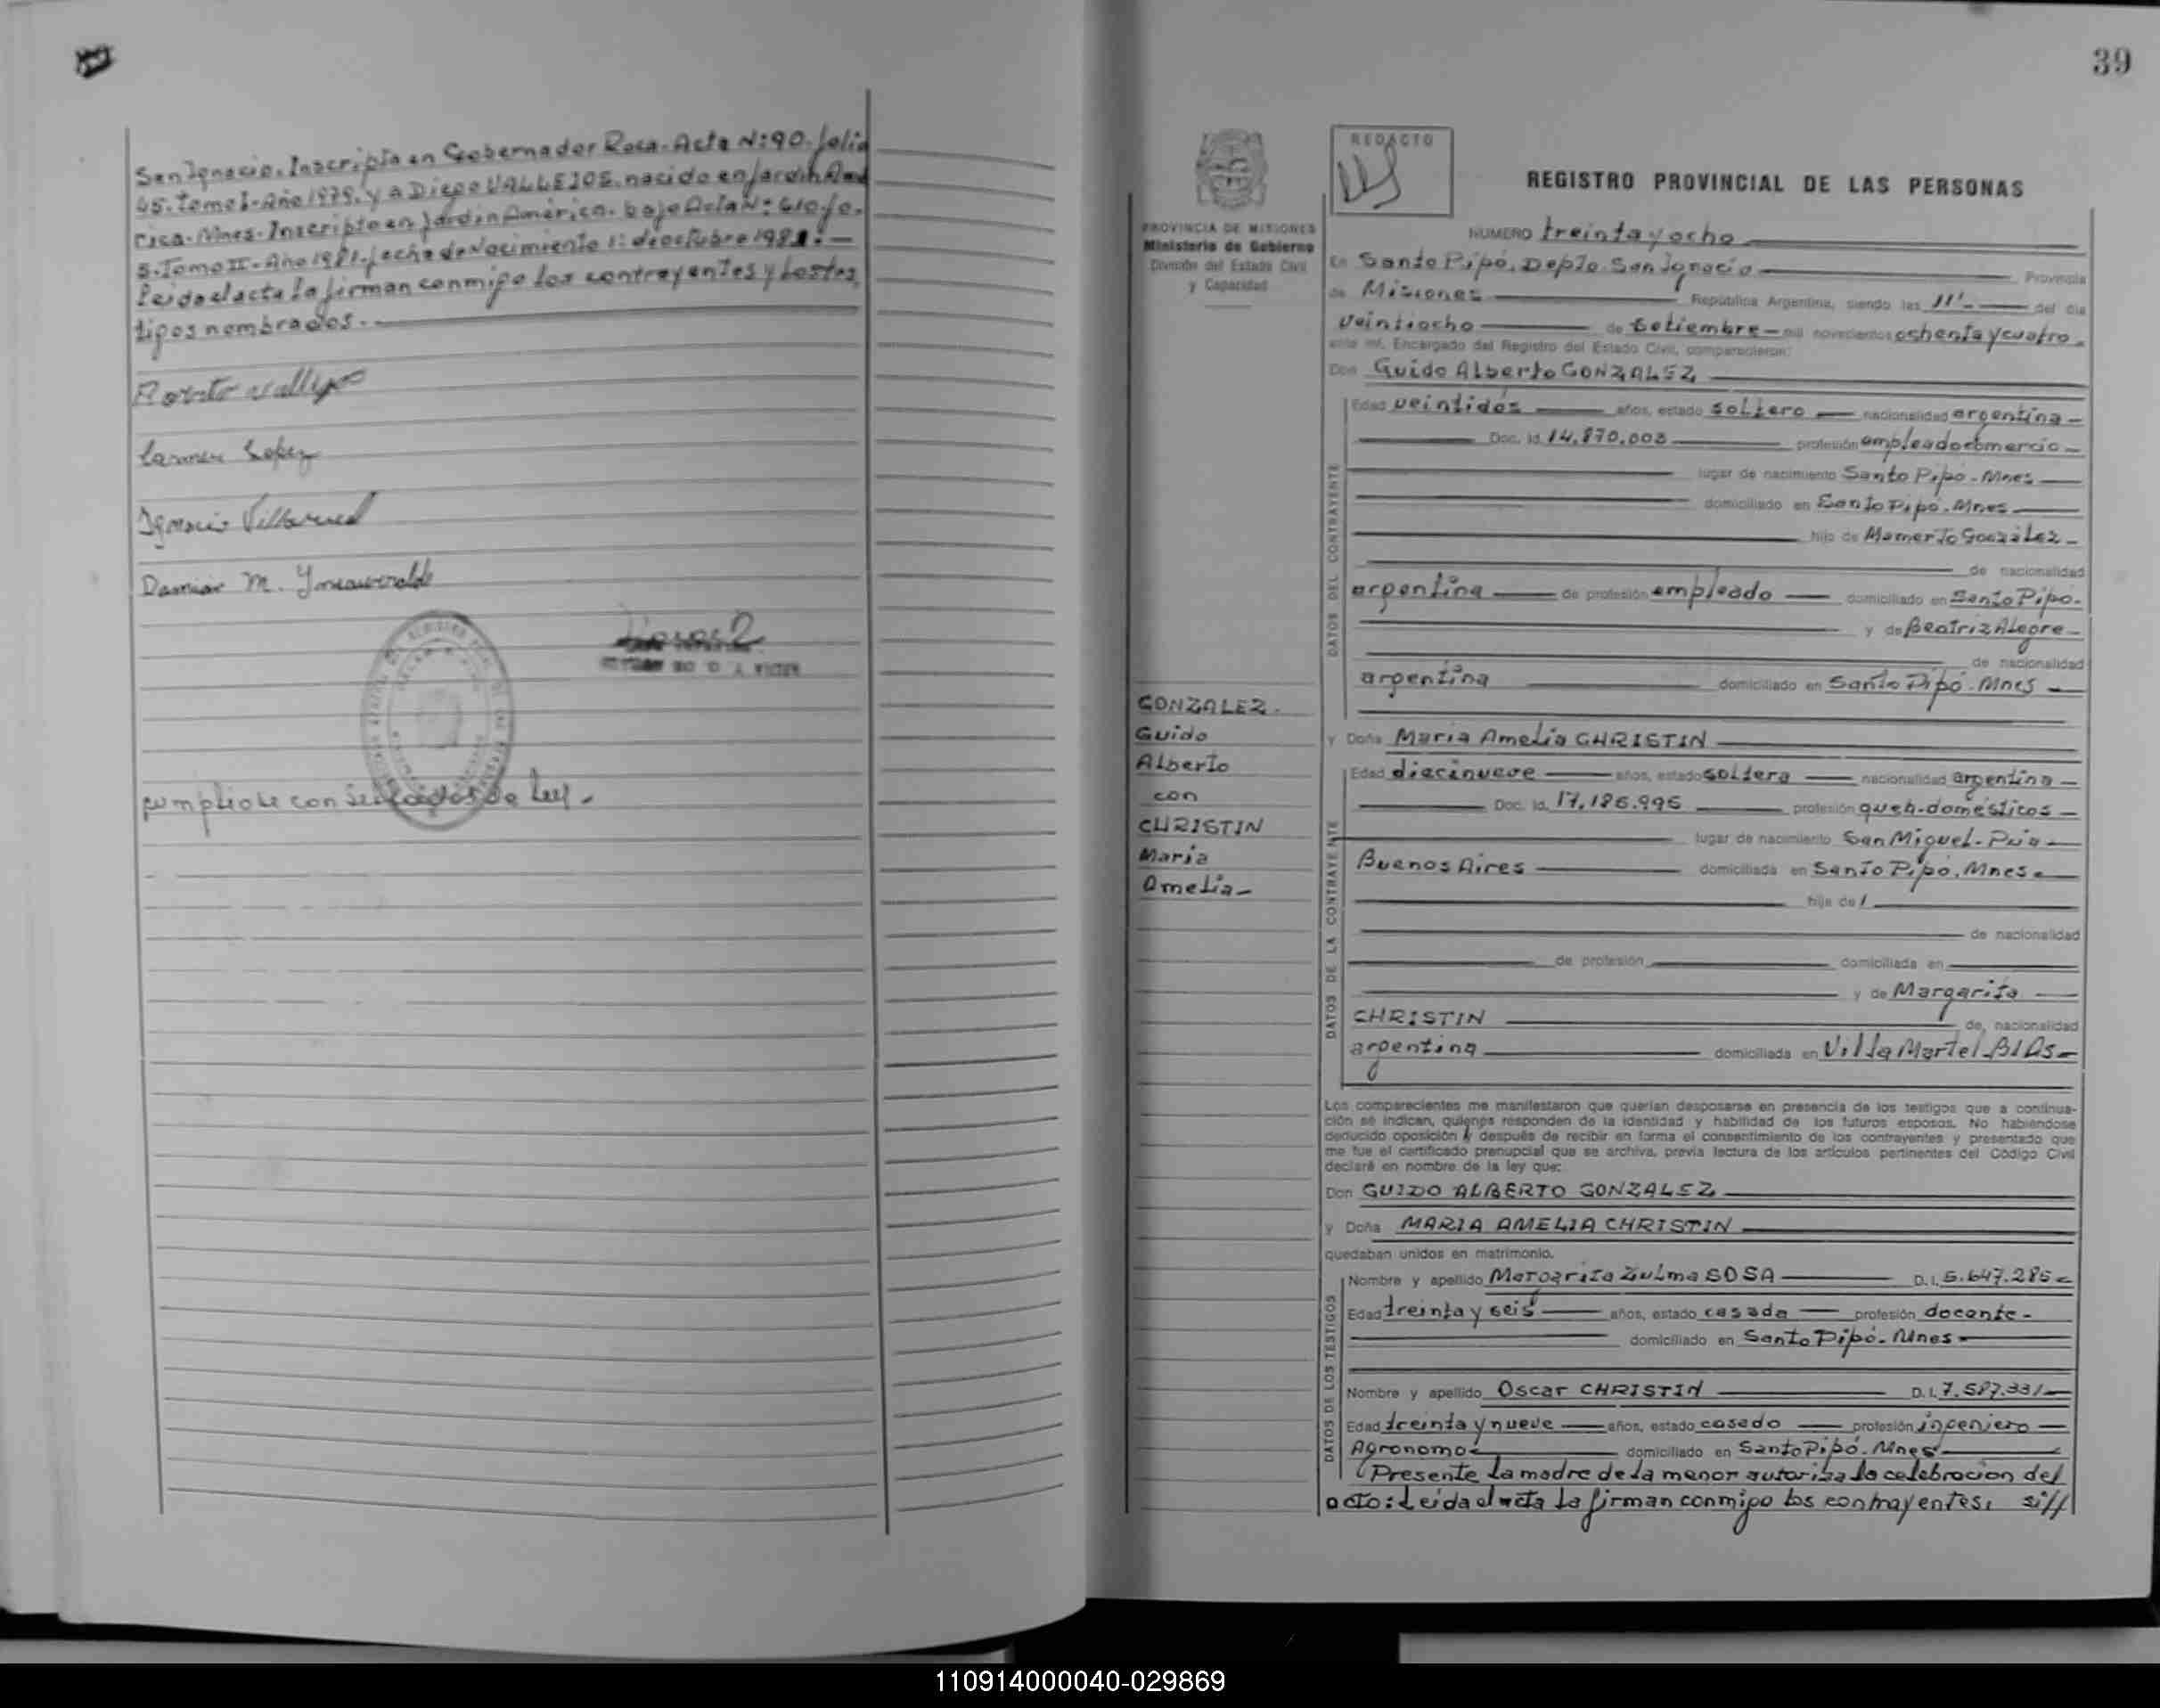 San Ignacio. Inscripta en Gobernador Roca. Acta N: 90. folio
45. Tomo I. Año 1979. y a Diego VALLEJOS. nacido en Jardin Amé
rica. Mnes. Inscripto en Jardin América. bajo Acta N: 410. fo.
5. Tomo II. Año 1981. fecha de Nacimiento 1: de octubre 1981. —
Leida el acta la firman conmigo los contrayentes y testes,
tigos nombrados. —
Carmen Lopez
Ignacio Villarreal
Damian M.
cumpliose con Sellados de Ley.
39
REDACTO
PROVINCIA DE MISIONES
Ministerio de Gobierno
División del Estado Civil
y Capacidad
REGISTRO PROVINCIAL DE LAS PERSONAS
NUMERO treinta y ocho
En Santo Pipó, Depto. San Ignacio Provincia
de Misiones República Argentina, siendo las 11'- del día
veintiocho de Setiembre - mil novecientos ochenta y cuatro.
ante mí, Encargado del Registro del Estado Civil, comparecieron:
Don Guido Alberto GONZALEZ
DATOS DEL CONTRAYENTE
Edad veintidós años, estado soltero nacionalidad argentina
Doc. Id. 14.870.003 profesión empleado comercio
lugar de nacimiento Santo Pipó. Mnes
domiciliado en Santo Pipó. Mnes.
hijo de Mamerto González
de nacionalidad
argentina de profesión empleado domiciliado en Santo Pipó.
y de Beatriz Alegre
de nacionalidad
argentina domiciliado en Santo Pipó. Mnes
GONZALEZ.
Guido
Alberto
con
CHRISTIN
Maria
Amelia
y Doña Maria Amelia CHRISTIN
DATOS DE LA CONTRAYENTE
Edad diecinueve años, estado soltera nacionalidad argentina
Doc. Id. 17.186.996 profesión queh. domésticos
lugar de nacimiento San Miguel. Pcia
Buenos Aires domiciliada en Santo Pipó. Mnes.
hija de /
de nacionalidad
de profesión domiciliada en
y de Margarita
CHRISTIN de nacionalidad
argentina domiciliada en Villa Martel. Bs As
Los comparecientes me manifestaron que querían desposarse en presencia de los testigos que a continua-
ción se indican, quienes responden de la identidad y habilidad de los futuros esposos. No habiéndose
deducido oposición y después de recibir en forma el consentimiento de los contrayentes y presentado que
me fue el certificado prenupcial que se archiva, previa lectura de los artículos pertinentes del Código Civil
declaré en nombre de la ley que:
Don GUIDO ALBERTO GONZALEZ
y Doña MARIA AMELIA CHRISTIN
quedaban unidos en matrimonio.
DATOS DE LOS TESTIGOS
Nombre y apellido Margarita Zulma SOSA D.I. 5.647.285
Edad treinta y seis años, estado casada profesión docente
domiciliado en Santo Pipó. Mnes
Nombre y apellido Oscar CHRISTIN D.I. 7.587.331
Edad treinta y nueve años, estado casado profesión ingeniero
Agronomo domiciliado en Santo Pipó. Mnes
Presente la madre de la menor autoriza la celebracion del
acto: Leida el acta la firman conmigo los contrayentes,
110914000040-029869